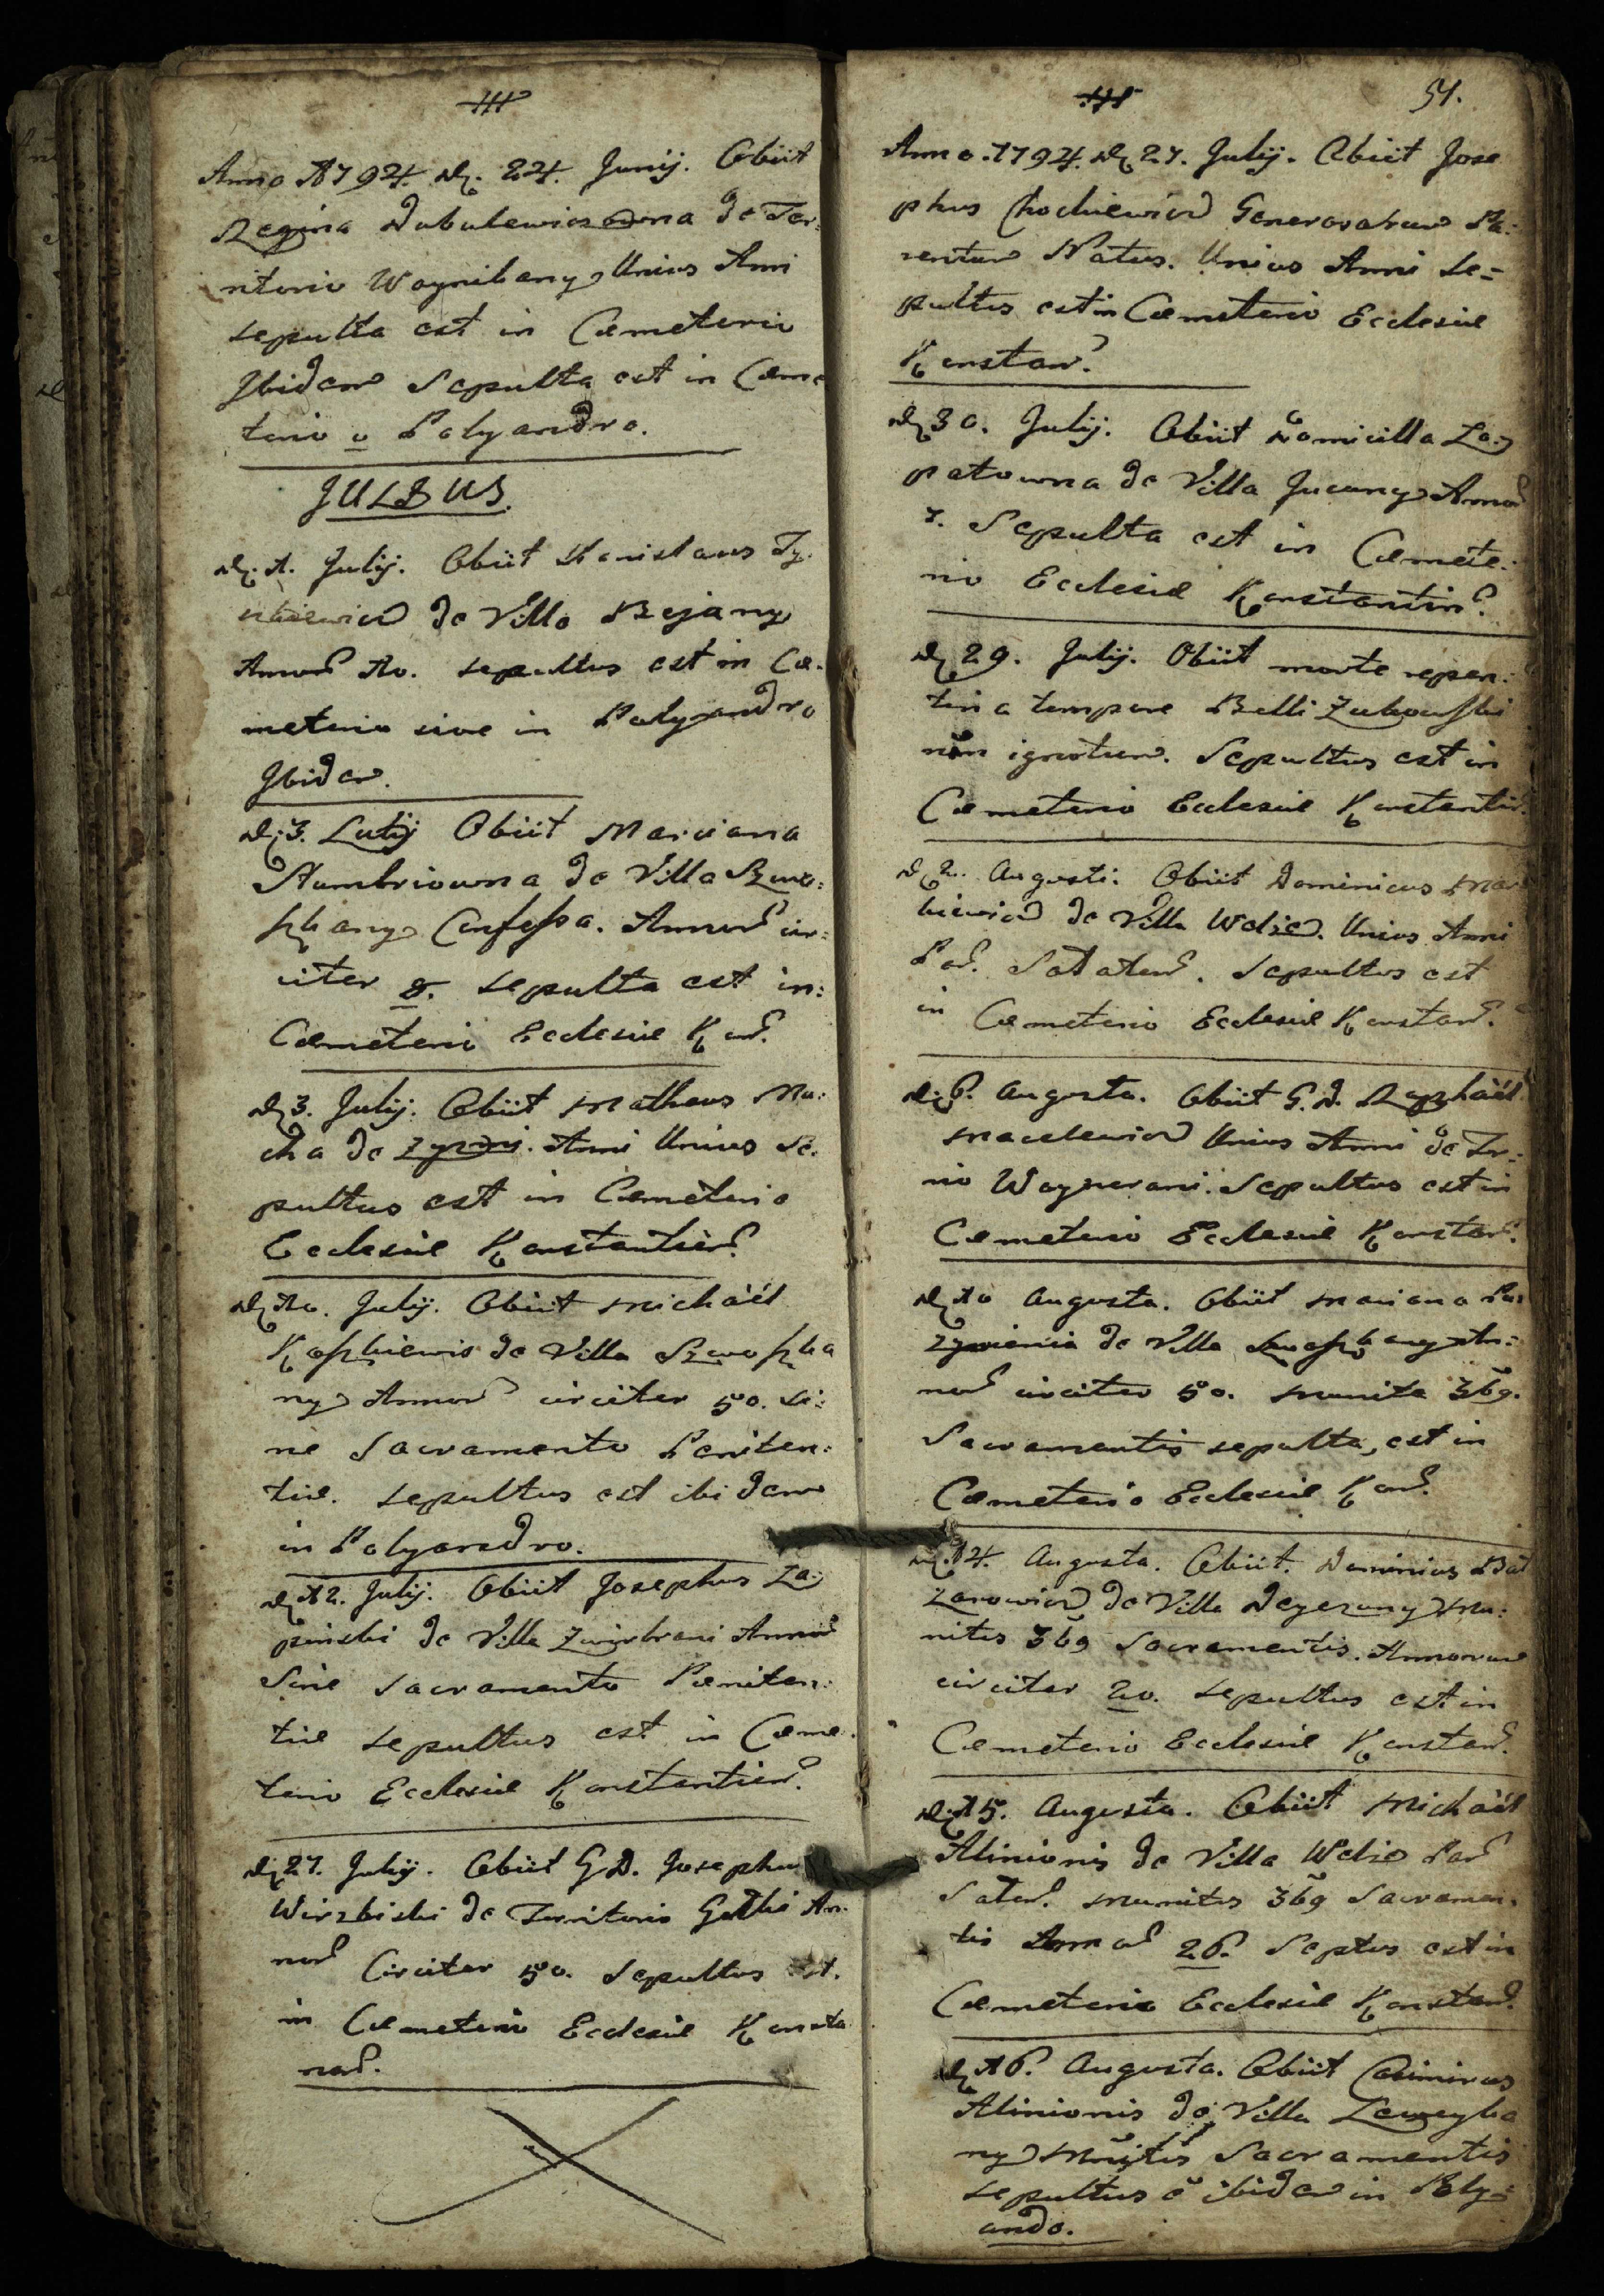 Anno 1794. D. 24. Junij. Obiit
Regina Dubulewiczowna de Ter:
ritorio Woynibany Unius Anni
sepulta est in Cœmeterio
Ibidem Sepulta est in Cœme
terio Polyandro.
JULIUS.
D. 1. Julij. Obiit Stanislaus
de Villa Bejany
Annor 10. sepultus est in Cœ:
meterio sive in Polyandro
Ibidem.
D. 3. Julij Obiit Marciana
Stumbriowna de Villa
Confessa. Annor cir:
citer 8. sepulta est in:
Cœmeterio Ecclesiæ Kon.
D 3. Julij. Obiit Matheus Mu:
cha de Anni Unius Se:
pultus est in Cœmeterio
Ecclesiæ Konstantin.
D 10. Julij. Obiit Michaël
de Villa
ny Annor circiter 50. si:
ne Sacramento Pœniten:
tiæ. sepultus est ibidem
in Polyandro.
D 12. Julij. Obiit Josephus Ła:
pinski de Villa Annor
Sine Sacramento Pœniten:
tiæ sepultus est in Cœme:
terio Ecclesiæ Konstantin.
D 27. Julij. Obiit G.D. Josephus
Wirzbiski de Territorio An:
nor Circiter 50. Sepultus est.
in Cœmeterio Ecclesiæ Konsta
nor.
54.
Anno. 1794. D 27. Julij. Obiit Jose
phus Chodkiewicz Generosorum Pa:
rentum Natus. Unius Anni Se=
pultus est in Cœmeterio Ecclesiæ
Konstan.
D 30. Julij. Obiit Domicilla Ło:
patowna de Villa Jucuny Annor
7. Sepulta est in Cœmete:
rio Ecclesiæ Konstantin.
D 29. Julij. Obiit morte repen:
tina tempore Belli Zukowski
nom ignotum. Sepultus est in
Cœmeterio Ecclesiæ Konstantin.
D 2. Augusti. Obiit Dominicus Mar
kiewicz de Villa Unius Anni
Par. Sepultus est
in Cœmeterio Ecclesiæ Konstan.
D. 6. Augusta. Obiit G.D. Raphaël
Macelewicz Unius Anni de Tr:
rio Woynerani. Sepultus est in
Cœmeterio Ecclesiæ Konstan.
D 10 Augusta. Obiit Mariana
de Villa An:
nor circiter 50. munita 3bg.
Sacramentis sepulta, est in
Cœmeterio Ecclesiæ Kon.
D. 14. Augusta. Obiit. Dominicus Bał
zarowicz de Villa Deyezuny Mu:
nitus 3bg Sacramentis. Annorum
circiter 20. sepultus est in
Cœmeterio Ecclesiæ Konstan.
D. 15. Augusta. Obiit Michaël
Alinionis de Villa Par
munitus 3bg Sacramen:
tis Annor 26. Septus est in
Cœmeterio Ecclesiæ Konstan.
D 16. Augusta. Obiit Casimirus
Alinionis de Villa
ny Munitus Sacramentis
sepultus ē ibidem in Poly=
ando.